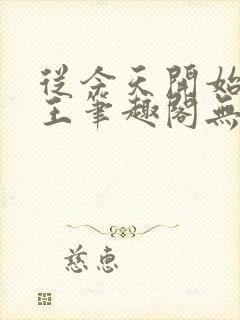 從今天開始
王筆趣閣無
慈惠